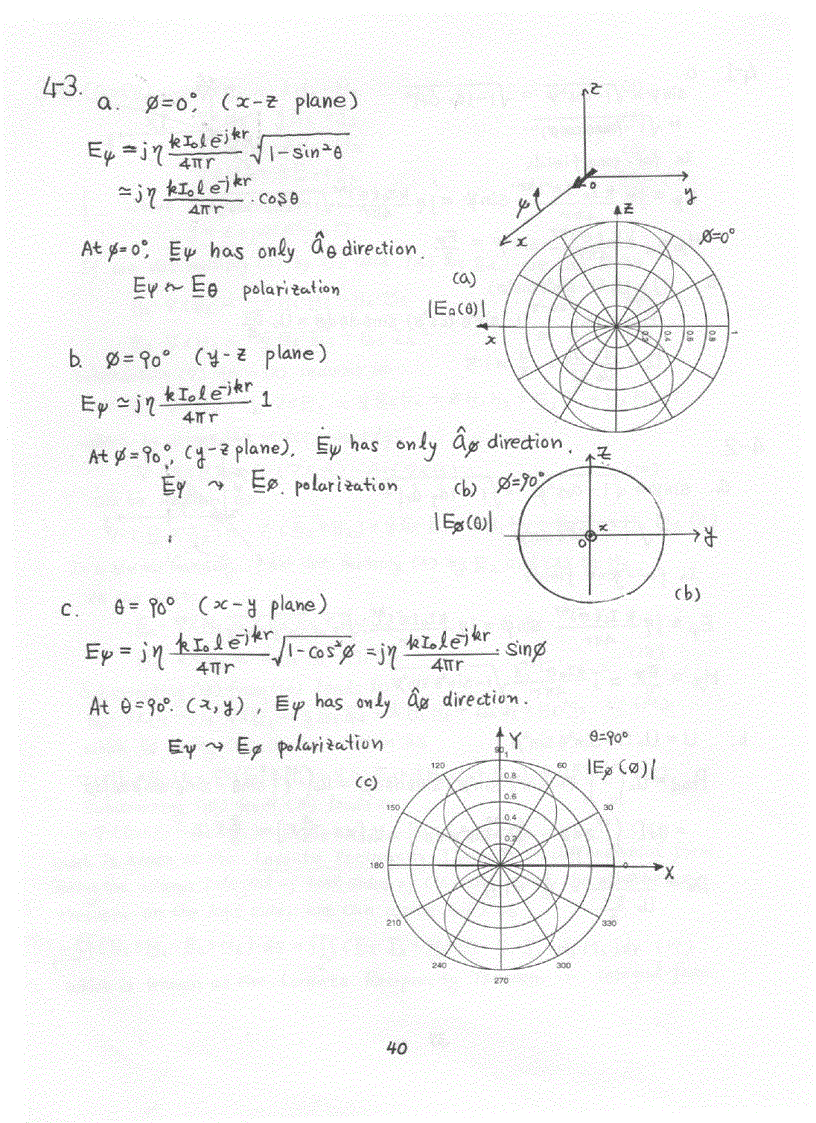 4-3.
a. ϕ=0°, (x-z plane)
Eψ = jη kI₀le^-jkr / 4πr √1-sin²θ
≃ jη kI₀le^-jkr / 4πr · cosθ
At ϕ=0°, Eψ has only âθ direction.
Eψ ~ Eθ polarization
z
y
x
ψ
0
z
ϕ=0°
(a)
|Eθ(θ)|
x
0.2 0.4 0.6 0.8 1
b. ϕ=90° (y-z plane)
Eψ ≃ jη kI₀le^-jkr / 4πr · 1
At ϕ=90°, (y-z plane), Eψ has only âϕ direction.
Eψ ~ Eϕ polarization
(b) ϕ=90°
|Eϕ(θ)|
z
x
0
y
(b)
c. θ=90° (x-y plane)
Eψ = jη kI₀le^-jkr / 4πr √1-cos²ϕ = jη kI₀le^-jkr / 4πr · sinϕ
At θ=90°. (x,y), Eψ has only âϕ direction.
Eψ ~ Eϕ polarization
(c)
Y
θ=90°
|Eϕ(ϕ)|
90
1
120
60
0.8
0.6
150
30
0.4
0.2
180
0
X
210
330
240
300
270
40